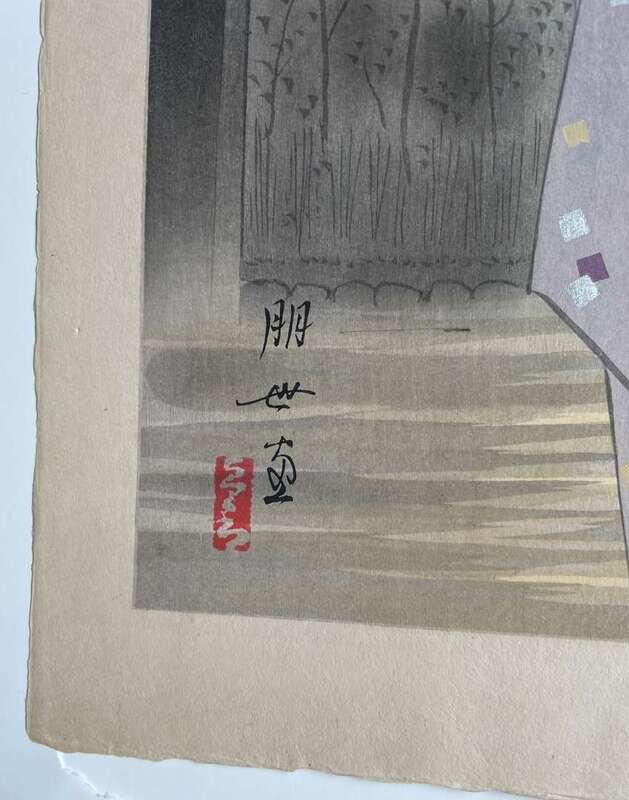 朋世画